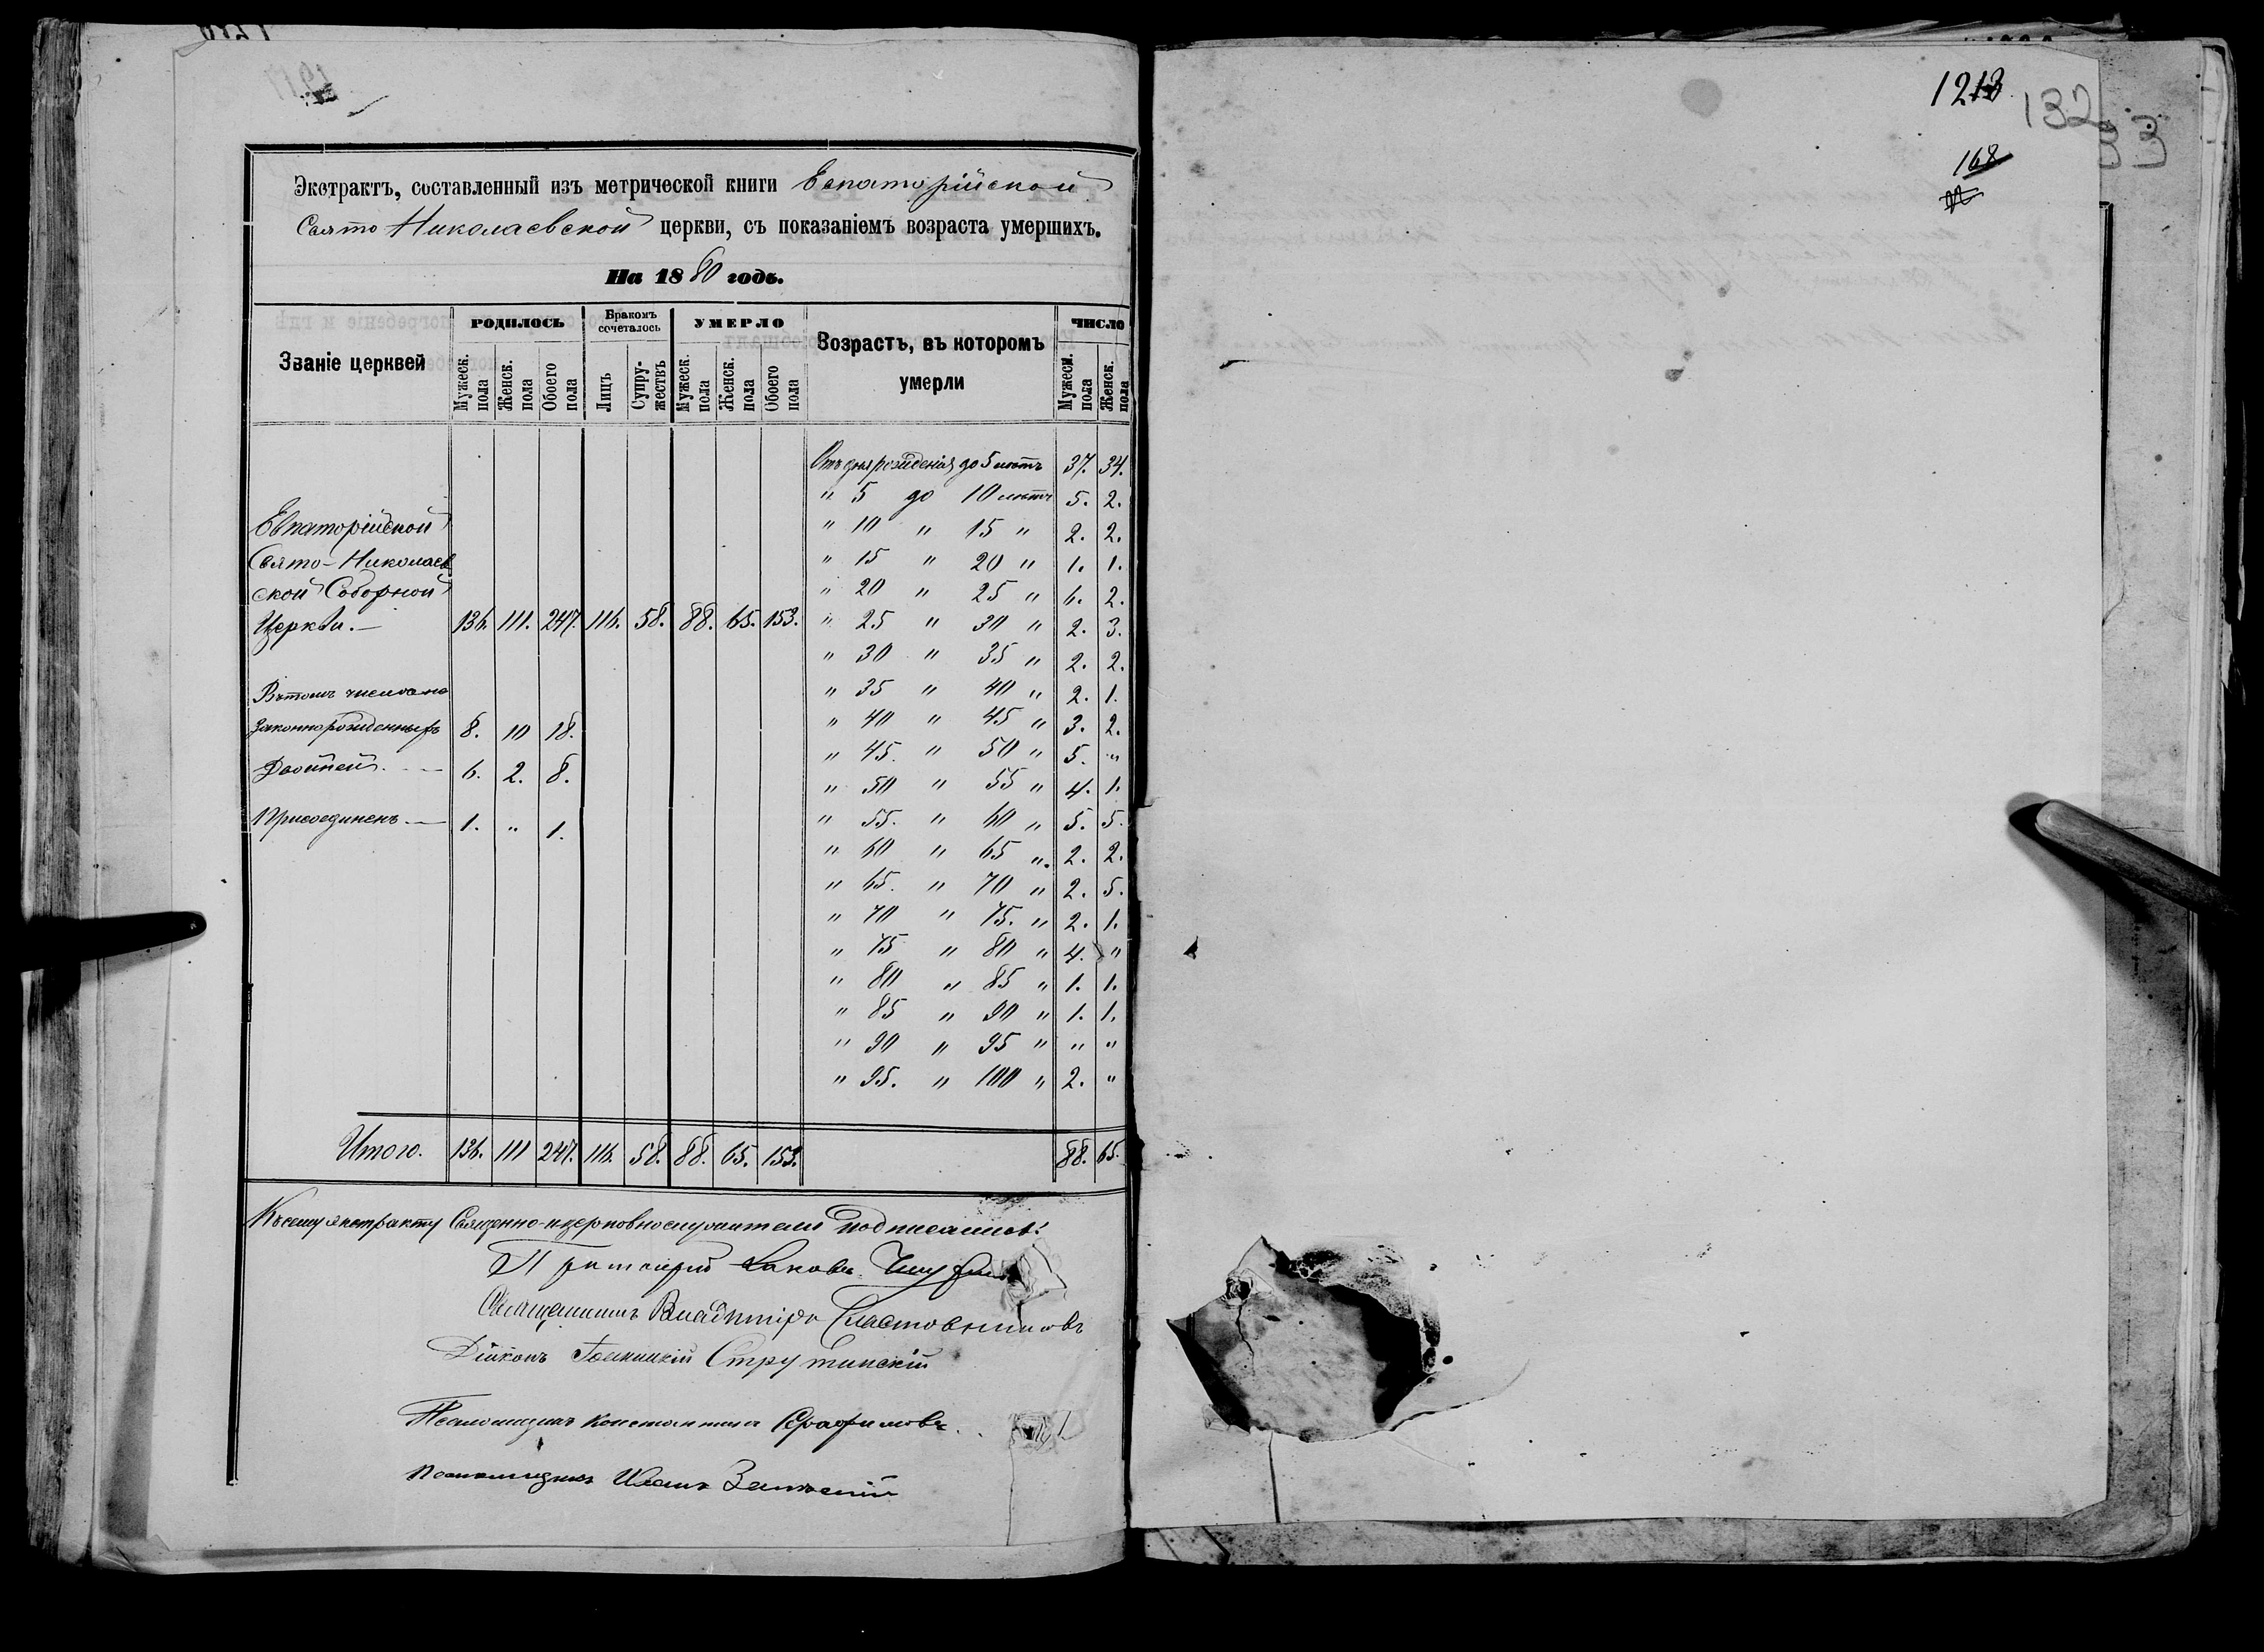 Экстрактъ, составленный изъ метрической книги Евпаторійской
Свято Николаевской церкви, съ показаніемъ возраста умершихъ.
На 1880 годъ.
Званіе церквей
РОДИЛОСЬ
Бракомъ сочеталось
УМЕРЛО
Возрастъ, въ которомъ умерли
ЧИСЛО
Мужеск. пола
Женск. пола
Обоего пола
Лицъ
Супружествъ
Мужеск. пола
Женск. пола
Обоего пола
Мужеск. пола
Женск. пола
Отъ дня рожденія до 5 лѣтъ 37. 34.
" 5 до 10 лѣтъ 5. 2.
Евпаторійской " 10 " 15 " 2. 2.
Свято-Николаев " 15 " 20 " 1. 1.
ской Соборной " 20 " 25 " 6. 2.
Церкви.— 136. 111. 247. 116. 58. 88. 65. 153. " 25 " 30 " 2. 3.
" 30 " 35 " 2. 2.
Въ томъ числѣ не " 35 " 40 " 2. 1.
законнорожденныхъ 8. 10 18. " 40 " 45 " 3. 2.
" 45. " 50 " 5. "
Двойней.— 6. 2. 8. " 50 " 55 " 4. 1.
Присоединенъ.— 1. " 1. " 55. " 60 " 5. 5.
" 60 " 65 " 2. 2.
" 65. " 70 " 2. 5.
" 70 " 75. " 2. 1.
" 75 " 80 " 4. "
" 80 " 85 " 1. 1.
" 85 " 90 " 1. 1.
" 90 " 95 " " "
" 95. " 100 " 2. "
Итого. 136. 111 247. 116. 58. 88. 65. 153. 88. 65.
Къ сему экстракту Священно-церковнослужители подписались:
Протоіерей Іаковъ
Священникъ Владиміръ Сластовниковъ
Діаконъ Струтинскій
Псаломщикъ Константинъ Серафимовъ.
Псаломщикъ Иванъ
1213
132
33
168